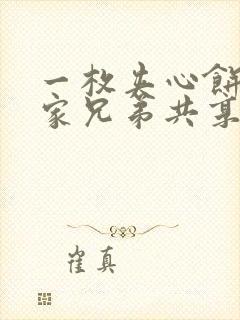 一枚夹心餅
家兄弟共某
崔真